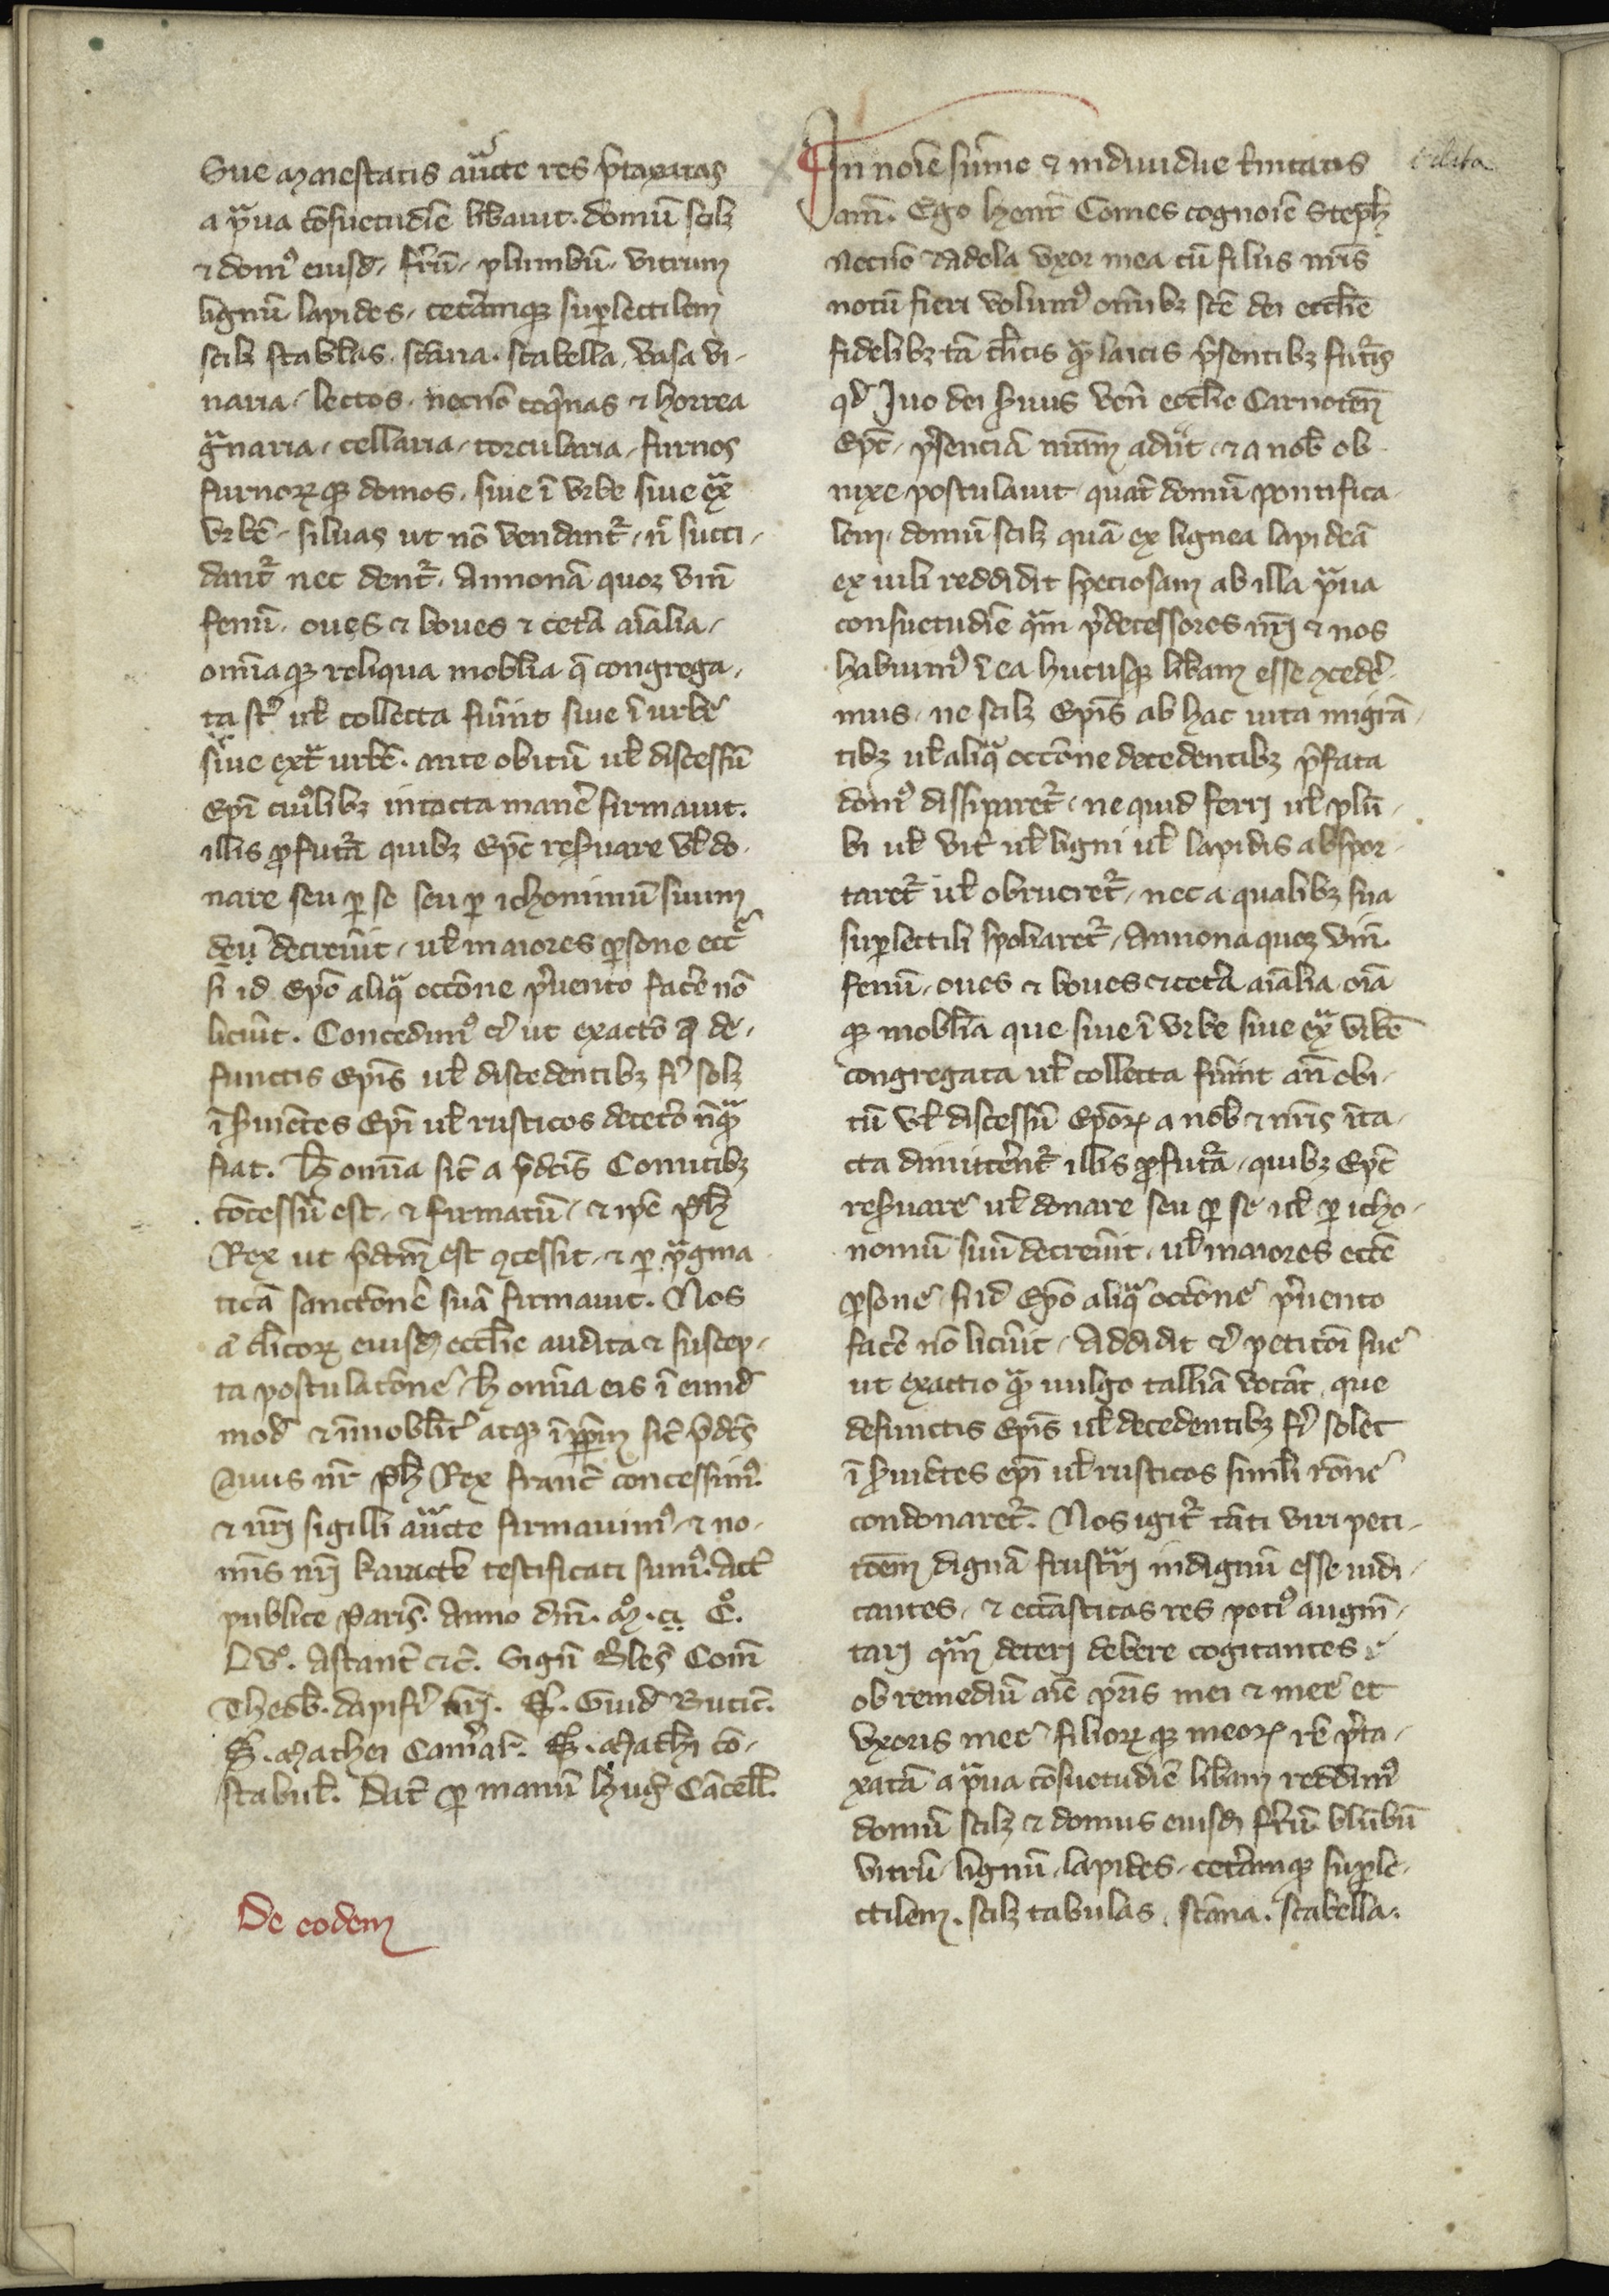 Sue maiestatis auctͣte res p̄taxatas
a pͣua cōsuetudīe lib̄auit. domū scilꝫ
⁊ domꝰ eiusd̄. ferrū. plumbū. vitrum
lignū lapides. cet̄amqꝫ suꝑlectilem
scilꝫ stab̄las. scāna. scabella. vasa vi-
naria. lectos. necnō coqͥnas ⁊ horrea
gͣnaria. cellaria. torcularia. furnos
furnoꝝqꝫ domos. siue ī vrbe siue exͣ
vrbē. siluas ut nō vendant̉. ̄n succi-
dant̉ nec dent̉. Annonā quoqꝫ vinū
fenū. oues ⁊ boues ⁊ cet̄a aīalia.
om̄iaqꝫ reliqua mobilia q̄ congrega-
ta st̉ ul̄ collecta fuīnt siue ī urbe
siue extͣ urbē. ante obitū ul̄ discessū
Ep̄i cuiꝰlibꝫ intacta manē firmauit.
illis ꝓfutͣa quibꝫ Ep̄c reſuare vl̄ do-
nare seu ꝑ se seu ꝑ ichonimū suum
decreuīt. ul̄ maiores ꝑsone ecc̄
si id Ep̄o aliqͣ occōne p̄uento facē nō
licuīt. Concedimꝰ et̉ ut exactō q̄ de-
functis Ep̄is ul̄ discedentibꝫ fͥ solꝫ
ī ſuiētes Ep̄i ul̄ rusticos decetō nūqͣ
fiat. H̄ omīa sic̄ a p̄dcīs Comitibꝫ
cōcessū est. ⁊ firmatū. ⁊ ip̄e Ph̄
Rex ut p̄dcm̄ est ꝯcessit. ⁊ ꝑ pͣgma
ticā sanctōnē suā firmauit. Nos
a cl̄icoꝝ eiusd̄ eccl̄ie audita ⁊ suscep-
ta postulatōne h̄ omīa eis ī eund̄
mod̄ ⁊ īmobl̄it̉ atqꝫ īꝑpm̄ sic̄ p̄dcs̄
auus nr̄ ph̄ Rex franc̄ concessimꝰ
⁊ nr̄i sigilli auctͣte firmauimꝰ. ⁊ no-
mīs nr̄i karactē testificati sumꝰ. Act̄
publice Parisꝰ. Anno dm̄. mͦ. c. Cͦ.
Lvͦ. Astant̄ ⁊c̄. Signū Bles̄ Com̄
Theob̄. dapifͥ nr̄i. S̄. Guid̄ Butic̄.
S̄. Mathei Cam̄ar̄. S̄. Mathi cō-
stabul̄. Dat̄ ꝑ manū hug̉ Cācell̄.
De eodem
In noīe sum̄e ⁊ indiuidue t̉nitatis
am̄. Ego henr̄ Comes cognoīe Steph̄
necnō ⁊ adela vxor mea cū filiis nr̄is
notū fieri volumꝰ om̄ibꝫ scē dei eccl̄ie
fidelibꝫ tā cl̄icis qͣ laicis p̄sentibꝫ futͥs
qd̄ Iuo dei ſuus vēn eccl̄ie Carnoten̄
Ep̄c. p̄senciā nr̄am adiit. ⁊ a nob̄ ob-
nixe postulauit. quat̄ domū pontifica-
lem. domū scilꝫ quā ex lignea lapideā
ex uili reddidit speciosam ab illa pͣua
consuetudīe qͣm p̄decessores nr̄i ⁊ nos
habuimꝰ ī ea hucusqꝫ lib̄am esse ꝯcedē-
mus. ne scilꝫ Ep̄is ab hac uita migrā-
tibꝫ ul̄ aliqͣ occōne decedentibꝫ p̄fata
domꝰ dissiparet̉. ne quid ferri ul̄ plū-
bi ul̄ vit̉ ul̄ ligni ul̄ lapidis abspor-
taret̉ ul̄ obrueret̉. nec a qualibꝫ sua
suꝑlectili spoliaret̉. Annona quoqꝫ vin̄.
fenū. oues ⁊ boues ⁊ cet̄a aīalia. oīa
qꝫ mobl̄ia que siue ī vrbe siue exͣ vrbē
congregata ul̄ collecta fuīnt an̄ obi-
tū vl̄ discessū Ep̄oꝝ a nob̄ ⁊ nr̄is īta-
cta dimittēnt̉ illis ꝓfutͣa. quibꝫ Ep̄c
reſuare ul̄ donare seu ꝑ se ul̄ ꝑ icho-
nomū suū decreuīt. ul̄ maiores eccē
ꝑsone si id Ep̄o aliqͣ occōne p̄uento
facē nō licuīt. Addidit et̉ peticōi sue
ut exactio qͣ uulgo talliā vocāt. que
defunctis Ep̄is ul̄ decedentibꝫ fͥ solet
ī ſuiētes ep̄i ul̄ rusticos simili rōne
condonaret̉. Nos igit̉ tāti viri peti-
cōem dignā frustͣri indignū esse iudi-
cantes. ⁊ eccāsticas res potiꝰ augm̄-
tari qͣm deteri debere cogitantes
ob remediū aīe pr̄is mei ⁊ mee et
vxoris mee filioꝝqꝫ meoꝝ rē p̄ta-
xatā a pͣua cōsuetudīe lib̄am reddimꝰ
domū scilꝫ ⁊ domus eiusd̄ ferrū. blūbū
vitrū. lignū. lapides. cet̄amqꝫ suꝑle-
ctilem. scilꝫ tabulas. scāna. scabella.